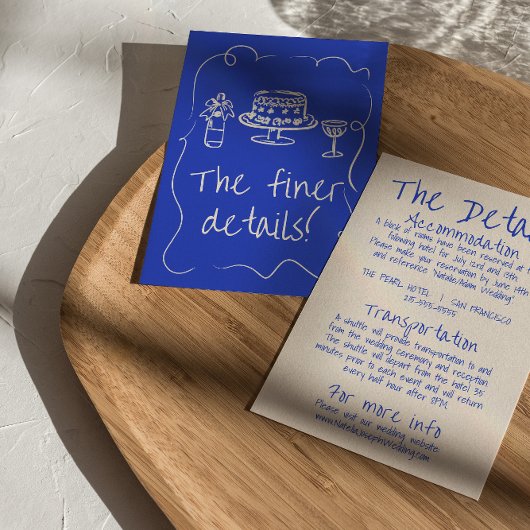 The finer
details!
The Deta
Accommodation
A block of rooms have been reserved at
following hotel for July 12rd and 13th.
Please make your reservation by June 14th
and reference 'Natalie/Adam Wedding'
THE PEARL HOTEL | SAN FRANCISCO
215-555-5555
Transportation
A shuttle will provide transportation to and
from the wedding ceremony and reception
The shuttle will depart from the hotel 35
minutes prior to each event and will return
every half hour after 8PM.
For more info
Please visit our wedding website:
www.NatebJosephWedding.com